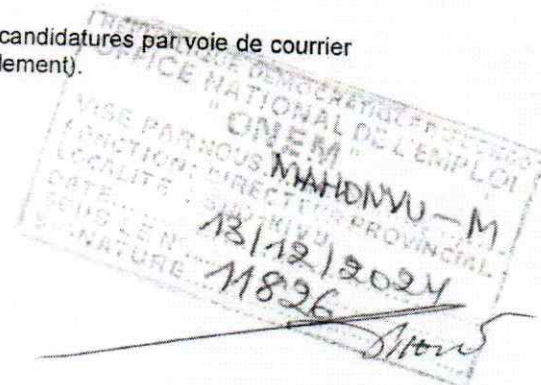 candidatures par voie de courrier
lement).
OFFICE NATIONAL DE L'EMPLOI
"ONEM"
VISE PAR NOUS MAHONVU-M
FONCTION: DIRECTEUR PROVINCIAL
LOCALITE
DATE 13/12/2024
SOUS LE N° 11826
NATURE